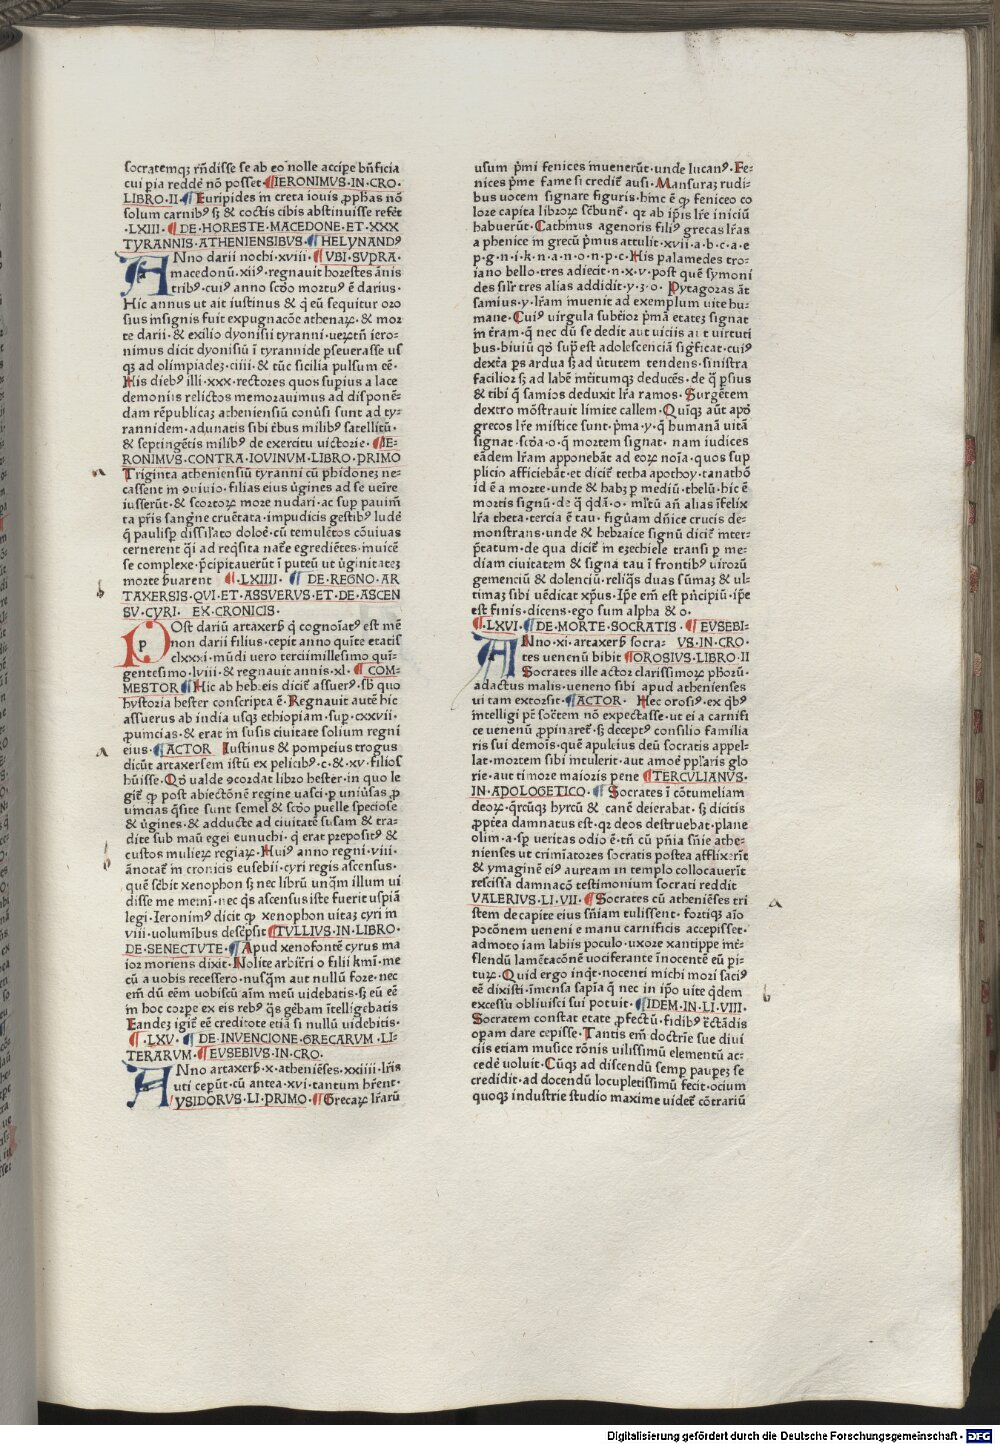 socratemqꝫ rn̄disse se ab eo nolle accipe bn̄ficia
cui pia reddē nō posset·¶IERONIMVS·IN·CRO·
LIBRO·II·¶Euripides in creta iouis ꝓphās nō
solum carnibꝰ sꝫ & coctis cibis abstinuisse refer̄t
·LXIII·¶DE·HORESTE·MACEDONE·ET·XXX
TYRANNIS·ATHENIENSIBVS·¶HELYNANDꝰ
ANno darii nothi·xviii·¶VBI·SVPRA·
macedonū·xiiꝰ·regnauit horestes ānis
tribꝰ·cuiꝰ anno scḋo mortuꝰ ē darius·
Hic annus ut ait iustinus & q̄ eū sequitur oro
sius insignis fuit expugnacōe athenaꝝ·& mor
te darii·& exilio dyonisii tyranni·ueꝝtn̄ iero-
nimus dicit dyonisiū ī tyrannide pseuerasse us
qꝫ ad olimpiadeꝫ·ciiii·& tūc sicilia pulsum eē·
His diebꝰ illi·xxx·rectores quos supius a lace
demoniis relictos memorauimus ad disponē-
dam rēpublicaꝫ atheniensiū conūsi sunt ad ty-
rannidem·adunatis sibi tbus milibꝰ satellitū·
& septingētis milibꝰ de exercitu uictorie·¶IE-
RONIMVS·CONTRA·IOVINVM·LIBRO·PRIMO
Triginta atheniensiū tyranni cū phidoneꝫ ne-
cassent in ꝯuiuio·filias eius ūgines ad se ueīre
iusserūt·& scortoꝝ more nudari·ac sup pauim̄
ta pr̄is sangne cruētata·impudicis gestibꝰ ludē
q̄ paulisp dissilato doloē·cū temulētos cōuiuas
cernerent q̄i ad reqͥsita natē egrediētes·muicē
se complexe·pͥcipitauerūt ī puteū ut ūginitateꝫ
morte ꝯuarent ¶·LXIIII·¶DE·REGNO·AR
TAXERSIS·QVI·ET·ASSVERVS·ET·DE·ASCEN
SV·CYRI· EX·CRONICIS·
POst dariū artaxerꝰ q̄ cognoīatꝰ est mē
non darii filius·cepit anno quīte etatis
clxxxi·mūdi uero terciimillesimo quī-
gentesimo·lviii·& regnauit annis·xl·¶COM-
MESTOR¶Hic ab hebreis dicit̄ assuerꝰ·sb quo
hystoria hester conscripta ē·Regnauit autē hic
assuerus ab india usqꝫ ethiopiam·sup·cxxvii·
ꝓuincias·& erat in susis ciuitate solium regni
eius·¶ACTOR Iustinus & pompeius trogus
dicūt artaxersem istū ex pelicibꝰ·c·& xv·filios
hūisse·Qō ualde ꝯcordat libro hester·in quo le
git̄ ꝙ post abiectōnē regine uasti·p uniūsas ꝓ
uincias q̄site sunt semel & scḋo puelle speciose
& ūgines·& adducte ad ciuitatē susam & tra-
dite sub maū egei eunuchi·q̄ erat prepositꝰ &
custos mulieꝝ regiaꝝ·Huiꝰ anno regni·viii·
ānotat̄ in cronicis eusebii·cyri regis ascensus·
quē scībit xenophon sꝫ nec librū unqͣm illum ui
disse me meinī·nec qͥs ascensus iste fuerit uspiā
legi·Ieronimꝰ dicit ꝙ xenophon uitaꝫ cyri in
viii·uolumībus descͥpsit¶TVLLIVS·IN·LIBRO·
DE·SENECTVTE·¶Apud xenofontē cyrus ma
ior moriens dixit·Nolite arbit̄ri o filii kmī·me
cū a uobis recessero·nusqͣm aut nullū fore·nec
em̄ dū eēm uobiscū aīm meū uidebatis·sꝫ eū eē
in hoc corpe ex eis rebꝰ q̄s gebam ītelligebatis
Eandeꝫ igit̄ eē creditote etiā si nullū uidebitis·
¶·LXV·¶DE·INVENCIONE·GRECARVM·LI-
TERARVM·¶EVSEBIVS·IN·CRO·
ANno artaxerꝰ·x·atheniēses·xxiiii·lr̄is
uti ceperūt·cū antea·xvi·tantum hr̄ent·
YSIDORVS·LI·PRIMO·¶Grecaꝝ lr̄arū
usum pͥmi fenices inuenerūt·unde lucanꝰ·Fe-
nices pͥme fame si credit̄ ausi·Mansuraꝫ rudi-
bus uocem signare figuris·hinc ē ꝙ feniceo co
lore capita libroꝝ scͥbunt̄·qꝛ ab ipīs lr̄e iniciū
habuerūt·Cathmus agenoris filiꝰ grecas lr̄as
a phenice in grecū pͥmus attulit·xvii·a·b·c·a·e
p·g·n·i·k·n·a·n·o·n·p·c·His palamedes tro-
iano bello·tres adiecit·n·x·v·post quē symoni
des silr̄ tres alias addidit·y·3·o·Pytagoras āt
samius·y·lr̄am inuenit ad exemplum uite hu-
mane·Cuiꝰ uirgula subtīor pͥmā etateꝫ signat
in tr̄am·q̄ nec dū se dedit aut uiciis aut uirtuti
bus·biuiū qō supest adolescenciā sigͥficat·cuiꝰ
dext̄a ps ardua sꝫ ad ūtutem tendens·sinistra
facilior sꝫ ad labē int̄itumqꝫ deducēs·de q̄ psius
& tibi q̄ samios deduxit lr̄a ramos·Surgētem
dextro mōstrauit limite callem·Quīqꝫ aūt apō
grecos lr̄e mistice sunt·pͥma·y·q̄ humanā uitā
signat·scḋa·o·q̄ mortem signat·nam iudices
eādem lr̄am apponebāt ad eoꝝ noīa·quos sup
plicio afficiebāt·et dicit̄ tetha apothoy·tanathō
id ē a morte·unde & habꝫ p mediū·thelū·hic ē
mortis signū·de q̄ qͥdā·o·mltū an̄ alias īfelix
lr̄a theta·tercia ē tau·figūam dn̄ice crucis de-
monstrans·unde & hebraice signū dicit̄ inter-
pͥtatum·de qua dicit̄ in ezechiele transi p me-
diam ciuitatem & signa tau ī frontibꝰ uirorū
gemenciū & dolenciū·reliqͥs duas sūmaꝫ & ul-
timaꝫ sibi uēdicat xp̄us·Ipē em̄ est pͥncipiū·ipē
est finis·dicens·ego sum alpha & o·
¶·LXVI·¶DE·MORTE·SOCRATIS·¶EVSEBI-
ANno·xi·artaxerꝰ socra- VS·IN·CRO·
tes uenenū bibit¶OROSIVS·LIBRO·II
Socrates ille actoꝫ clarissimoꝝ phōrū·
adactus malis·ueneno sibi apud athenienses
ui tam extorsit·¶ACTOR· Hec orosiꝰ·ex qͥbꝰ
intelligi pt̄ socͣtem nō expectasse·ut ei a carnifi
ce uenenū ꝓpinaret̄·sꝫ deceptꝰ consilio familia
ris sui demōis·quē apuleius deū socratis appel-
lat·mortem sibi intulerit·aut amoē pplaris glo
rie·aut timore maioris pene¶TERCVLIANVS·
IN·APOLOGETICO·¶Socrates ī cōtumeliam
deoꝝ·qͥrcūqꝫ hyrcū & canē deierabat·sꝫ dicitis
ꝓptea damnatus est·qꝛ deos destruebat·plane
olim·a·sp ueritas odio ē·tn̄ cū pn̄ia sn̄ie athe-
nienses ut criminatores socratis postea afflixerīt
& ymaginē eiꝰ auream in templo collocauerīt
rescissa damnacō testimonium socrati reddit
VALERIVS·LI·VII·¶Socrates cū atheniēses tri
stem de capite eius sn̄iam tulissent·fortiqꝫ aīo
pocōnem ueneni e manu carnificis accepisset·
admoto iam labiis poculo·uxore xantippe int̄
flendū lamētacōnē uociferante īnocentē eū pi-
turꝝ·Quid ergo inqͥt·nocenti michi mori saciꝰ
eē dixisti·īmensa sapīa q̄ nec in ipō uite qͥdem
excessu obliuisci sui potuit·¶IDEM·IN·LI·VIII·
Socratem constat etate ꝓfectū·fidibꝰ t̄ctādis
opam dare cepisse·Tantis em̄ doctrīe sue diui
ciis etiam musice rōnis uilissimū elementū ac-
cedē uoluit·Cūqꝫ ad discendū semp paupeꝫ se
credidit·ad docendū locupletissimū fecit·ocium
quoqꝫ industrie studio maxime uidet̄ cōtrariū
Digitalisierung gefördert durch die Deutsche Forschungsgemeinschaft - DFG